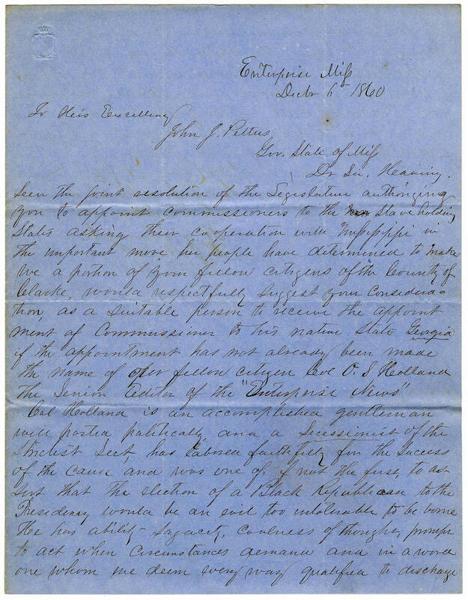 Enterprise Miss
Decbr 6th 1860
To His Excellency
John J. Pettus
Gov. State of Miss
Dr Sir, Having
seen the joint resolution of the Legislature authorizing
you to appoint commissioners to the Slave holding
States asking their co operation with Mississippi in
the important move her people have determined to make
We a portion of your fellow citizens of the County of
Clarke, would respectfully suggest your considera-
tion as a Suitable person to receive the appoint
ment of Commissioner to his native State Georgia
if the appointment has not already been made
the name of our fellow citizen Col O. S Holland
the Senior Editor of the "Enterprise News"
Col Holland is an accomplished gentleman
well posted politically and a Secessionist of the
Strictest Sect, has labored faithfully for the success
of the cause and was one of, if not the first, to as
sert that the election of a Black Republican to the
Presidency would be an evil too intolerable to be borne
He has ability - Sagacity, coolness of thought, prompt
to act when circumstances demand and in a word
one whom we deem every way qualified to discharge